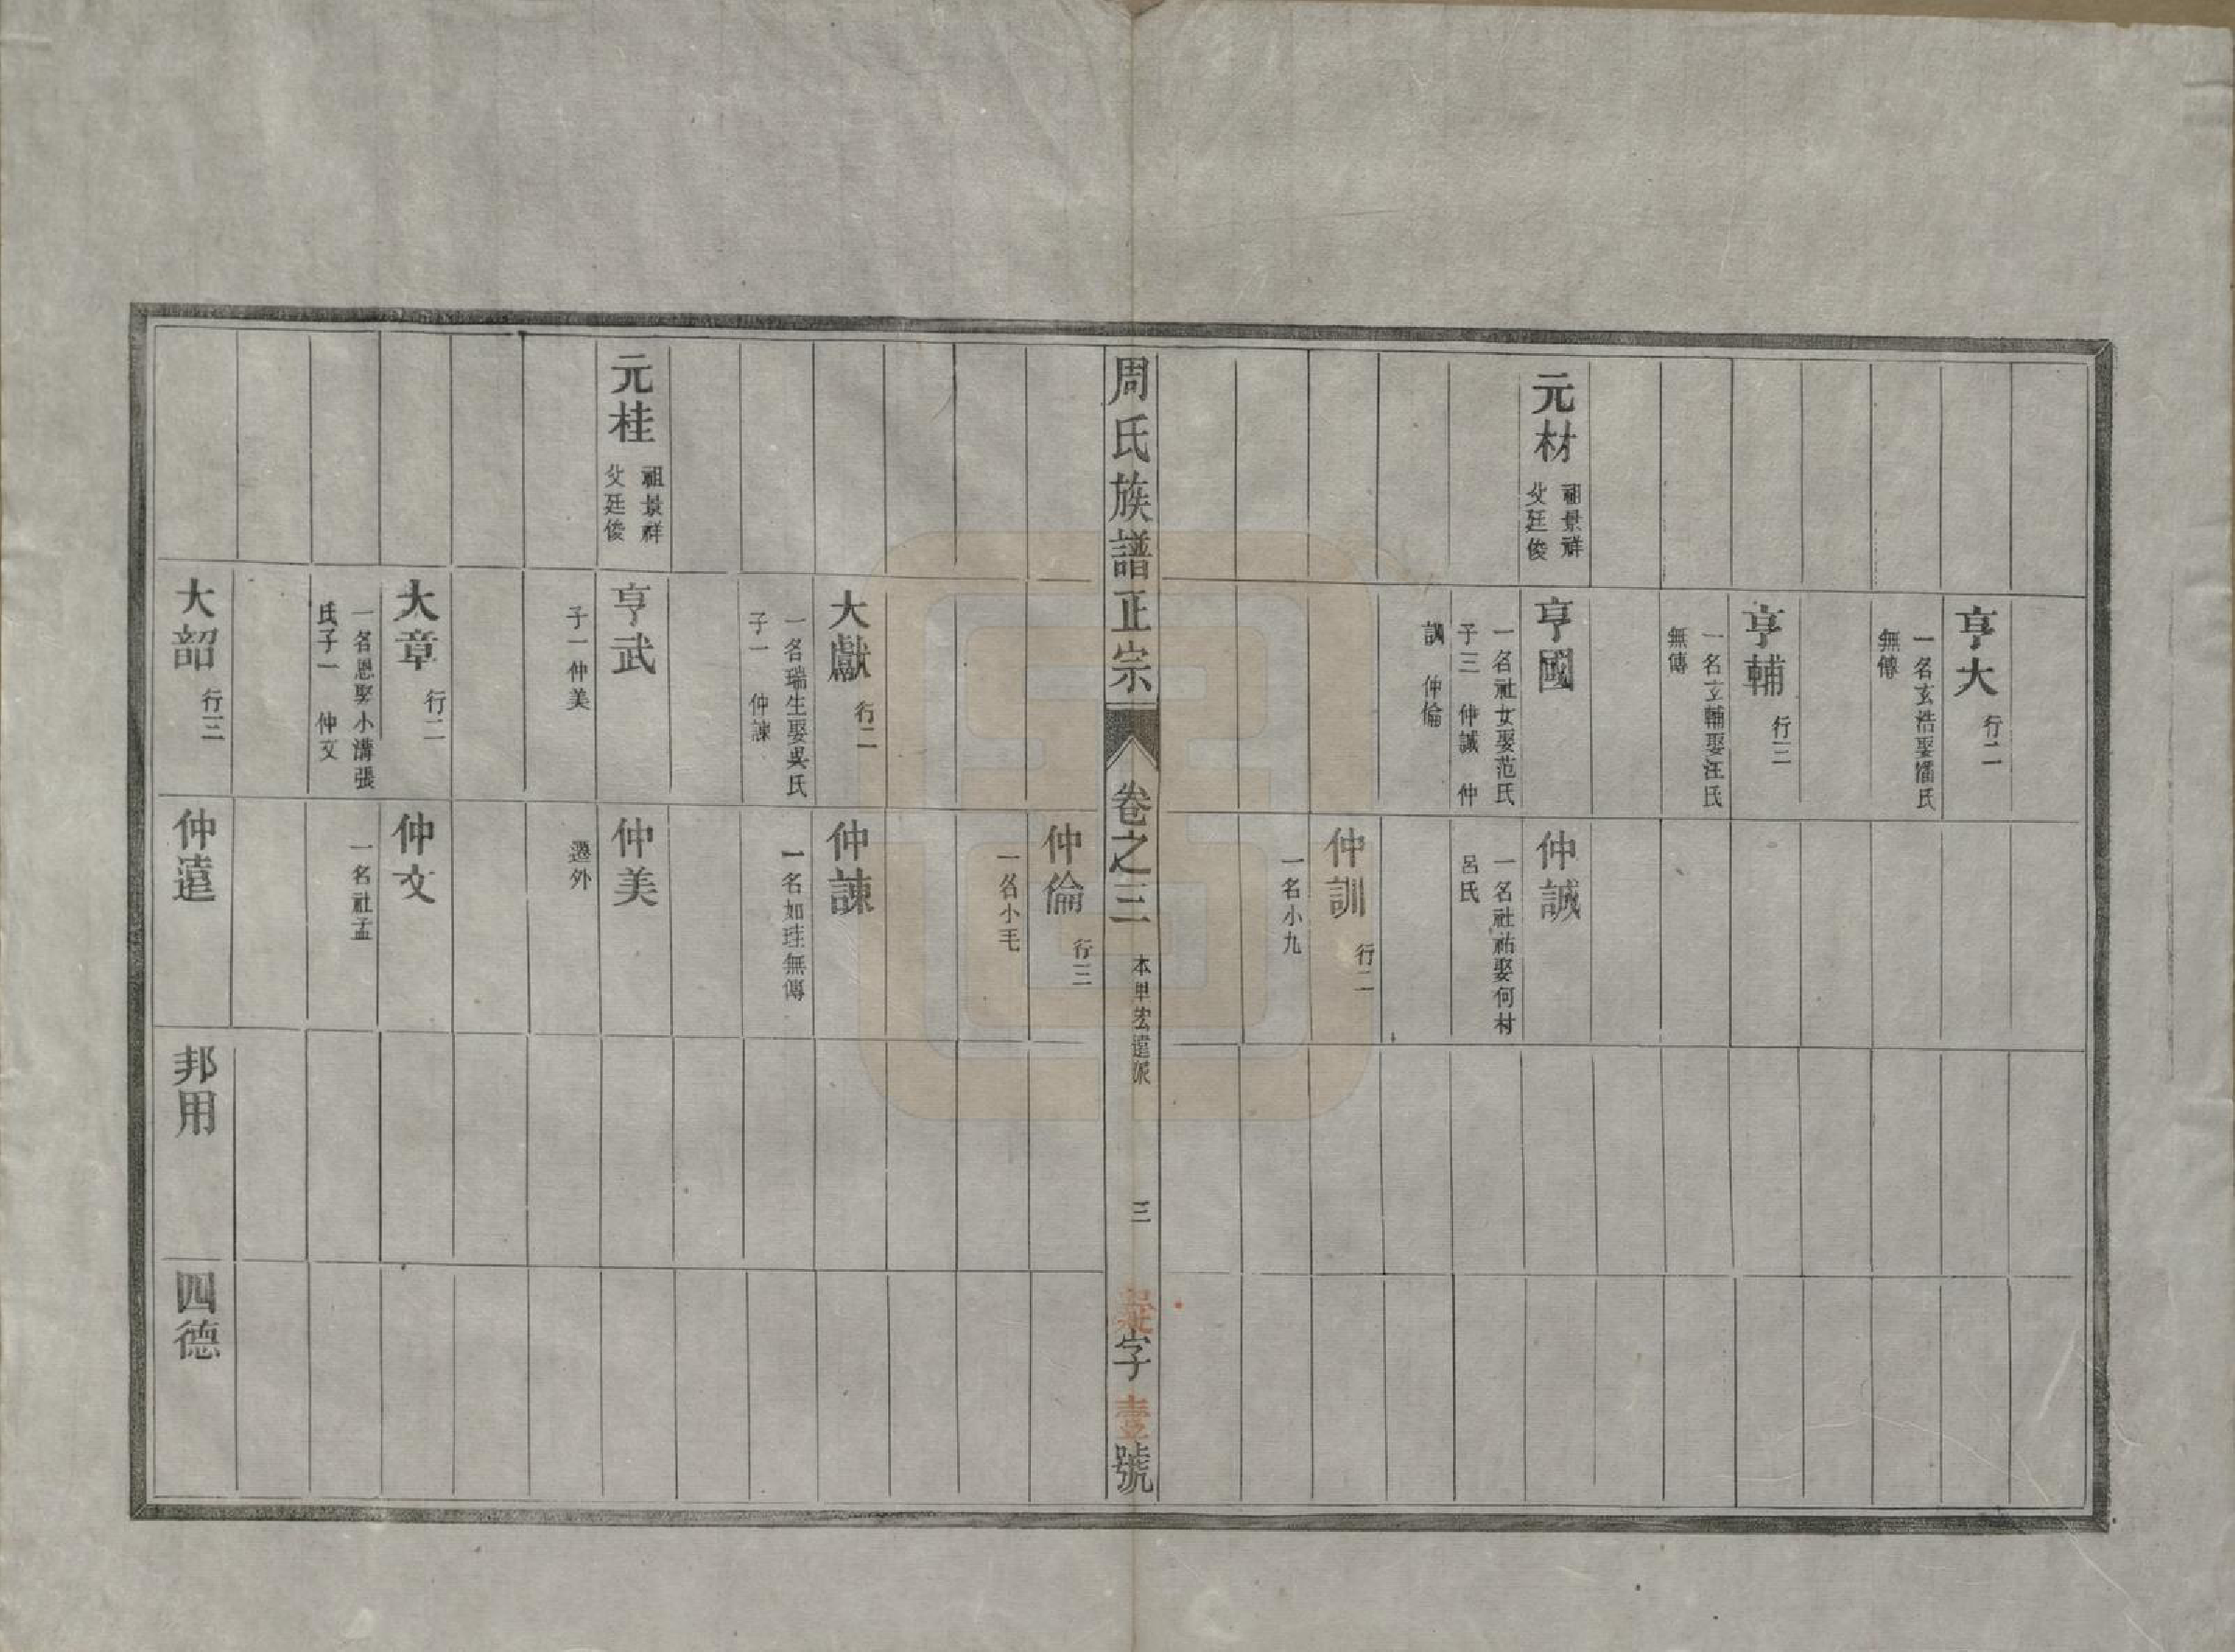 亨大
行二
一名玄浩娶潘氏
無傳
亨輔
行三
一名玄輔娶汪氏
無傳
元材
祖景祥
父廷俊
亨國
一名社女娶范氏
子三 仲誠 仲
訓 仲倫
仲誠
一名社祐娶何村
呂氏
仲訓
行二
一名小九
周氏族譜正宗
卷之三
本里宏遠派
三
字壹號
仲倫
行三
一名小毛
大獻
行二
一名瑞生娶吳氏
子一 仲諫
仲諫
一名如珪無傳
元桂
祖景祥
父廷俊
亨武
子一仲美
仲美
遷外
大章
行二
一名恩娶小溝張
氏子一 仲文
仲文
一名社孟
大韶
行三
仲遠
邦用
四德